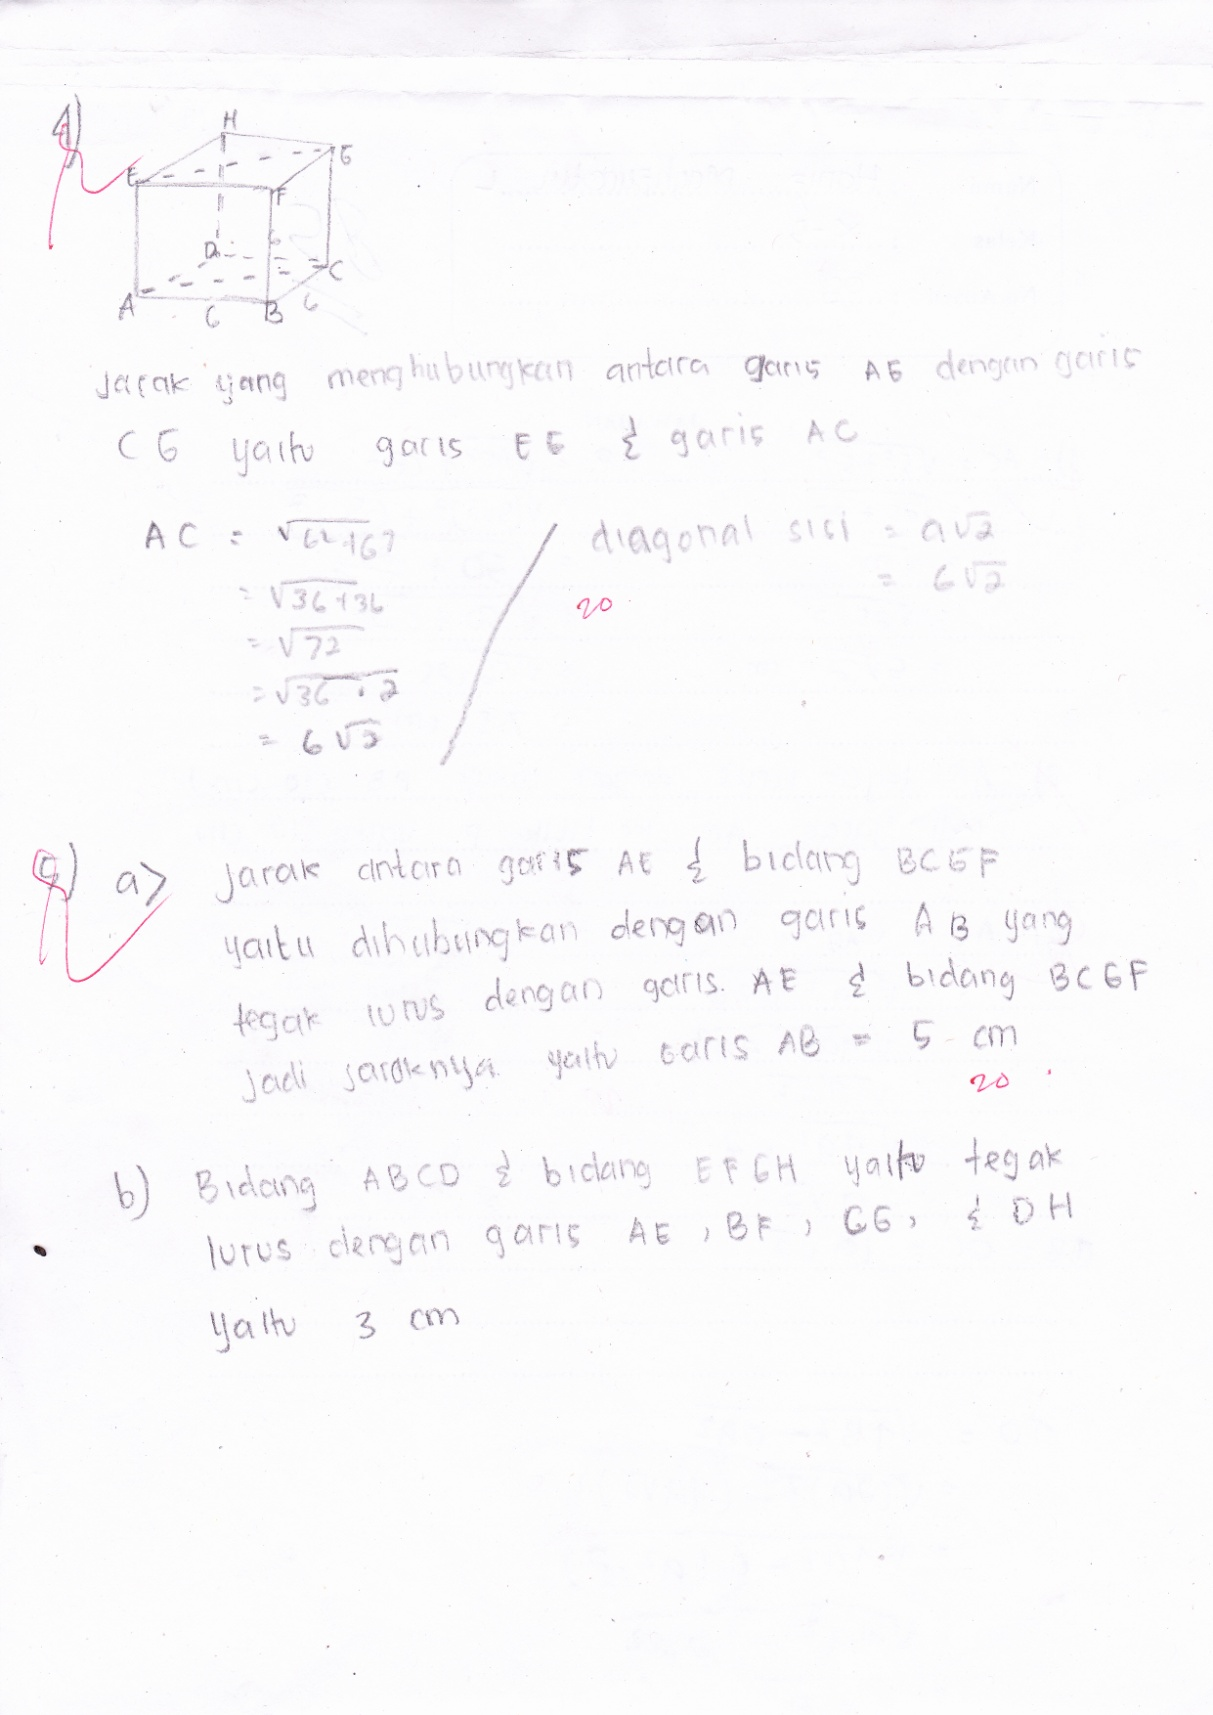 4)
H
E
G
F
6
D
C
A
6
B
6
Jarak yang menghubungkan antara garis AE dengan garis
CG yaitu garis EG & garis AC
AC = √6²+6²
= √36+36
= √72
= √36 · 2
= 6√2
diagonal sisi = a√2
= 6√2
20
a) Jarak antara garis AE & bidang BCGF
yaitu dihubungkan dengan garis AB yang
tegak lurus dengan garis. AE & bidang BCGF
jadi jaraknya yaitu garis AB = 5 cm
20
b) Bidang ABCD & bidang EFGH yaitu tegak
lurus dengan garis AE, BF, CG, & DH
yaitu 3 cm